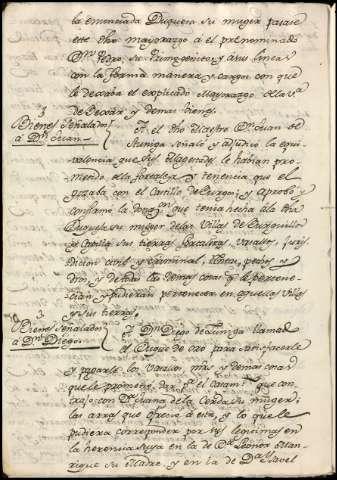 la enunciada Duquesa su muger pasase
este dho mayorazgo à el prenominado
Dn. Pedro, su Primogenito, y a sus lineas
con la forma manera y cargas con que
le dexaba el explicado Mayorazgo de la Va.
de Bexar, y demas vienes.
Bienes señalados
à Dn. Juan.
A el dho Maestro Dn. Juan de
Zuñiga señaló y adjudicó la equi-
valencia que sus Magestades le habian pro-
metido
la fortaleza y tenencia que el
gozaba con el Castillo de Burgos; y aprobó y
confirmó la donazn. que tenia hecha à la dha
Duquesa su muger de las Villas de Burguillos
y Capilla sus tierras, fortalezas, vasallos, juris
dicion civil y criminal, rentas, pechos y
dros, y de todas las demas cosas q le pertene-
cian y pudieran pertenecer en aquellas Villas
y sus tierras.
3
Bienes señalados
à Dn. Diego.
A Dn. Diego de Zuñiga
el Duque de
oro para satisfacerle
y pagarle los Vasallos, mrs y demas cosas
que le prometió dar pr. el casamto. que con-
trajo con Da. Juana de la Cerda su muger;
las arras que ofreció à esta, y lo que le
pudiera corresponder por sus legitimas en
la herencia suya en la de Da. Leonor Man-
rique su Madre, y en la de Da. Ysavel